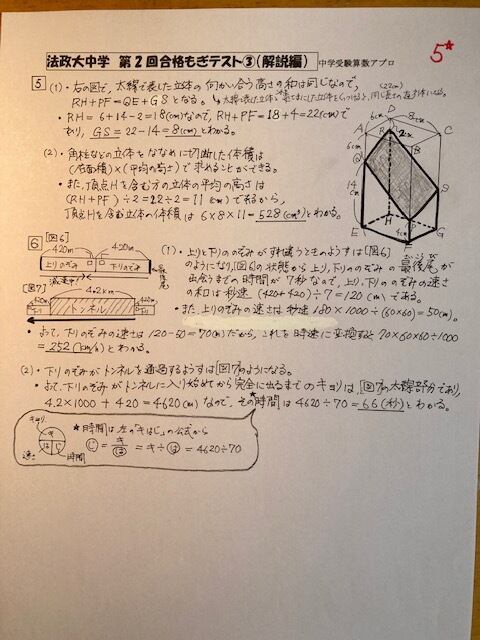 法政大中学 第2回合格もぎテスト③(解説編) 中学受験算数アプロ
5☆
5 (1)・右の図で、太線で表した立体の向かい合う高さの和は同じなので、
RH+PF=QE+GSとなる。
(22cm)
・RH=6+14-2=18(cm)なので、RH+PF=18+4=22(cm)で
あり、GS=22-14=8(cm)とわかる。
(2)・角柱などの立体をななめに切断した体積は
(底面積)×(平均の高さ)で求めることができる。
・また、頂点Hを含む方の立体の平均の高さは
(RH+PF)÷2=22÷2=11(cm)であるから、
頂点Hを含む立体の体積は 6×8×11=528(cm³)とわかる。
D
6cm 8cm
A R 2cm C
6cm B
Q
14cm
S
H P
E 4cm G
F
6 [図6]
420m 420m
上りのぞみ 下りのぞみ
最後尾
[図7] 4.2km
420m トンネル 420m
下り
(1)・上りと下りののぞみがすれ違うときのようすは[図6]
のようになり、[図6]の状態から上り、下りののぞみの最後尾が
出会うまでの時間が7秒なので、上り、下りののぞみの速さ
の和は秒速 (420+420)÷7=120(m)である。
・また、上りのぞみの速さは秒速180×1000÷(60×60)=50(m)。
・よって、下りのぞみの速さは 120-50=70(m)だから、これを時速に変換すると 70×60×60÷1000
=252(km/h)とわかる。
(2)・下りのぞみがトンネルを通過するようすは[図7]のようになる。
・よって、下りのぞみがトンネルに入り始めてから完全に出るまでのキョリは、[図7]の太線部分であり、
4.2×1000+420=4620(m)なので、その時間は 4620÷70=66(秒)とわかる。
キョリ
き
は じ
速さ 時間
★時間は左の「きはじ」の公式から
じ=き/は=き÷は=4620÷70